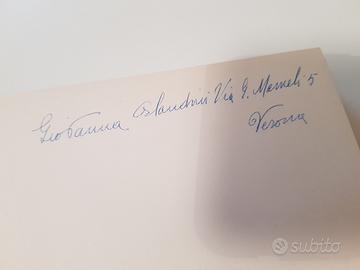 Giovanna Orlandini Via G. Mameli 5
Verona
subito